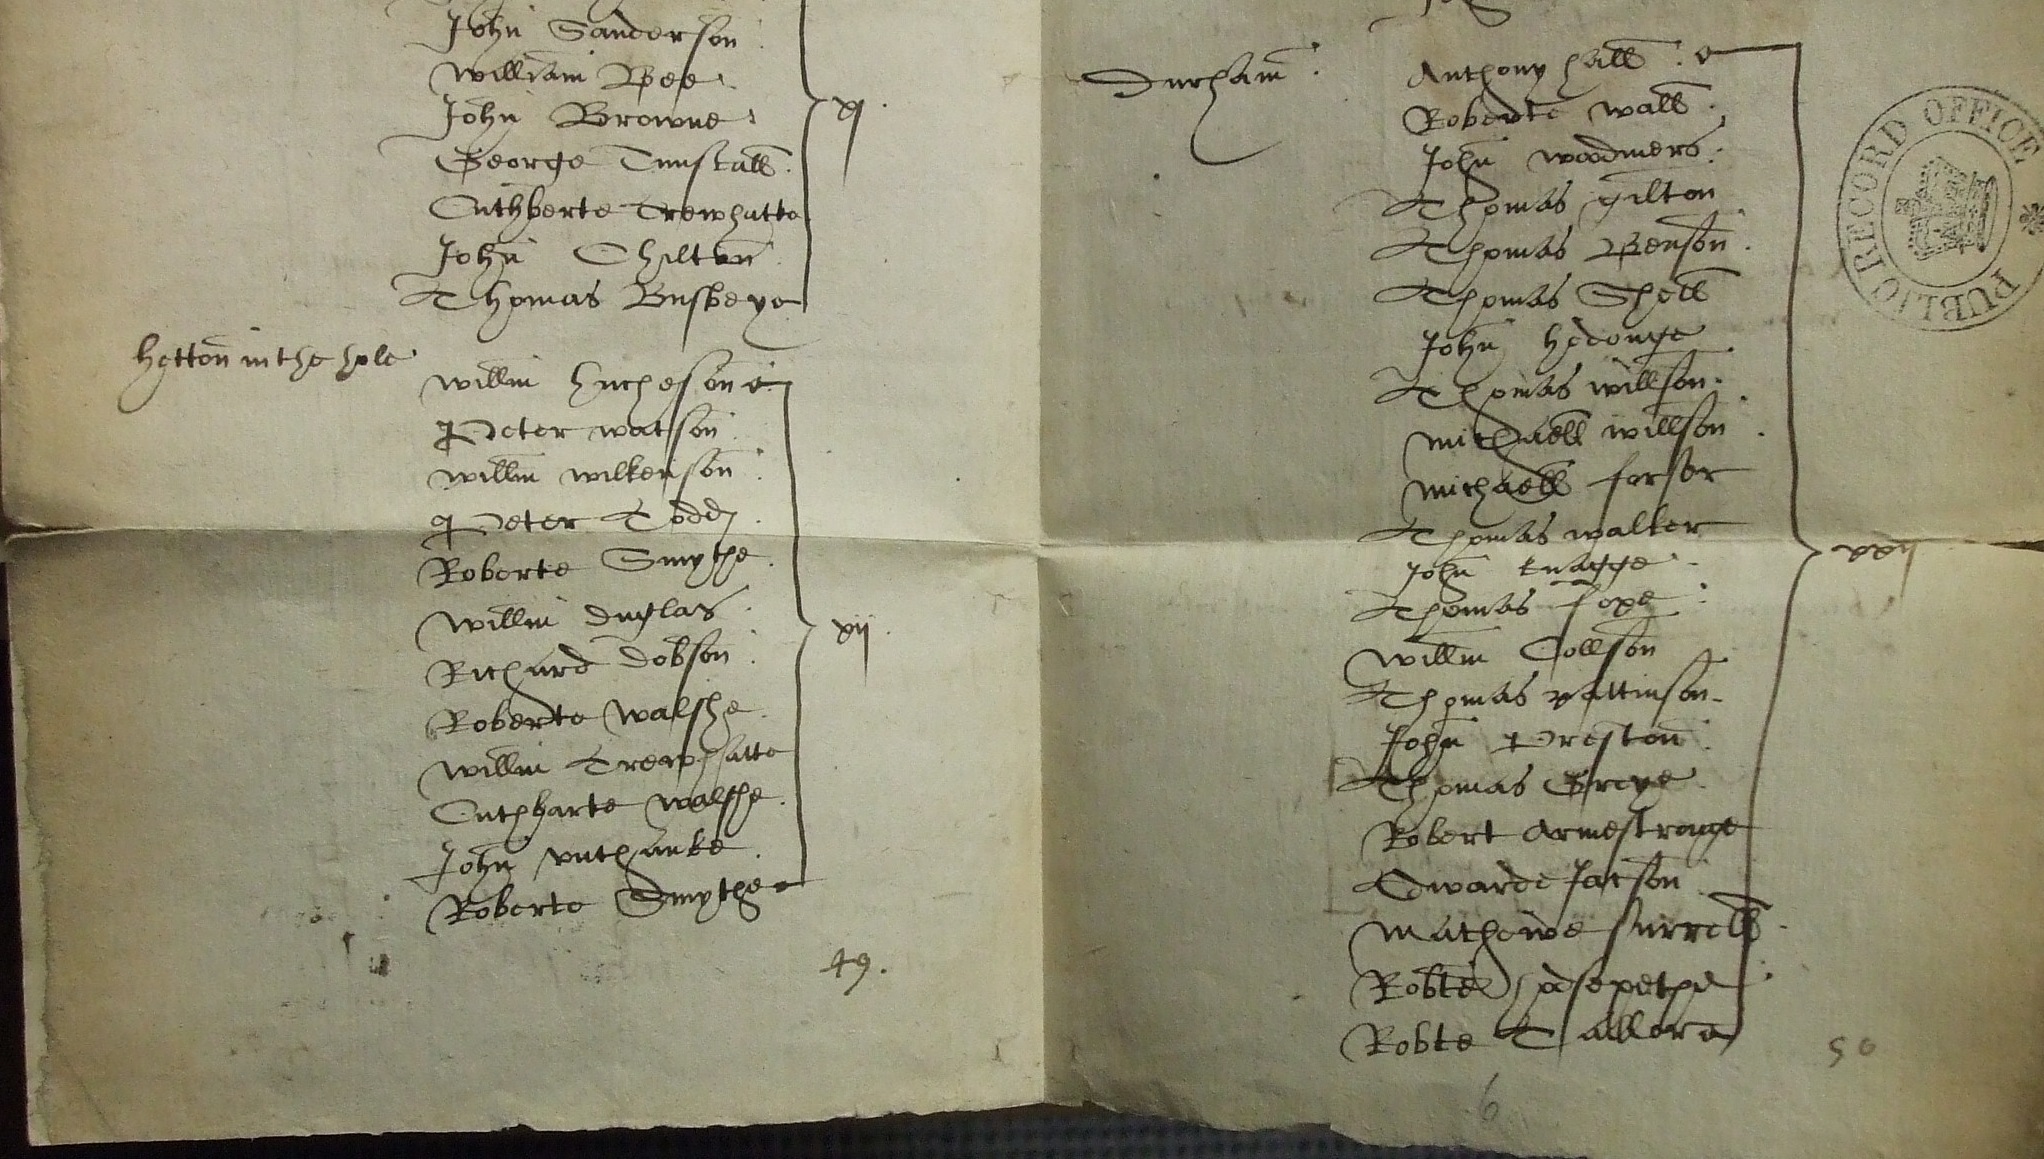 John Sanderson
William Bee
John Browne
xj
George Tunstall
Cuthberte Trewhatte
John Chilton
Thomas Busbeye
Hetton in the hole
Willm Hucheson
Peter Watson
Willm Wilkenson
Peter Todd
Roberte Smythe
Willm Duglas
xij
Richard Dobson
Roberte Walshe
Willm Trewhatte
Cuthbarte Walshe
John Unthanke
Roberte Smythe
49.
Durham
Anthony Hall
Roberte Wall
John Woodmers
Thomas Gilton
Thomas Benson
Thomas Shell
John Hedonge
Thomas Willson
Michaell Willson
Michaell Forser
Thomas Walker
John Knagge
xxij
Thomas Foxe
Willm Collson
Thomas Pattinson
John Preston
Thomas Greye
Robert Armestrange
Edwarde Jacson
Mathewe Surrell
Robte
Robte Tallore
50
6
PUBLIC RECORD OFFICE